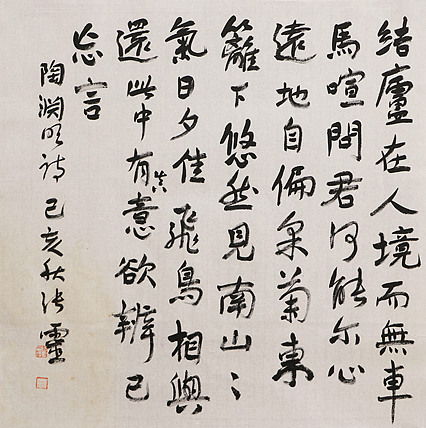 结廬在人境而無車
馬喧問君何能尔心
遠地自偏采菊東
籬下悠然見南山〻
氣日夕佳飛鳥相與
還此中有真意欲辨已
忘言
陶渊明诗 己亥秋 张靈